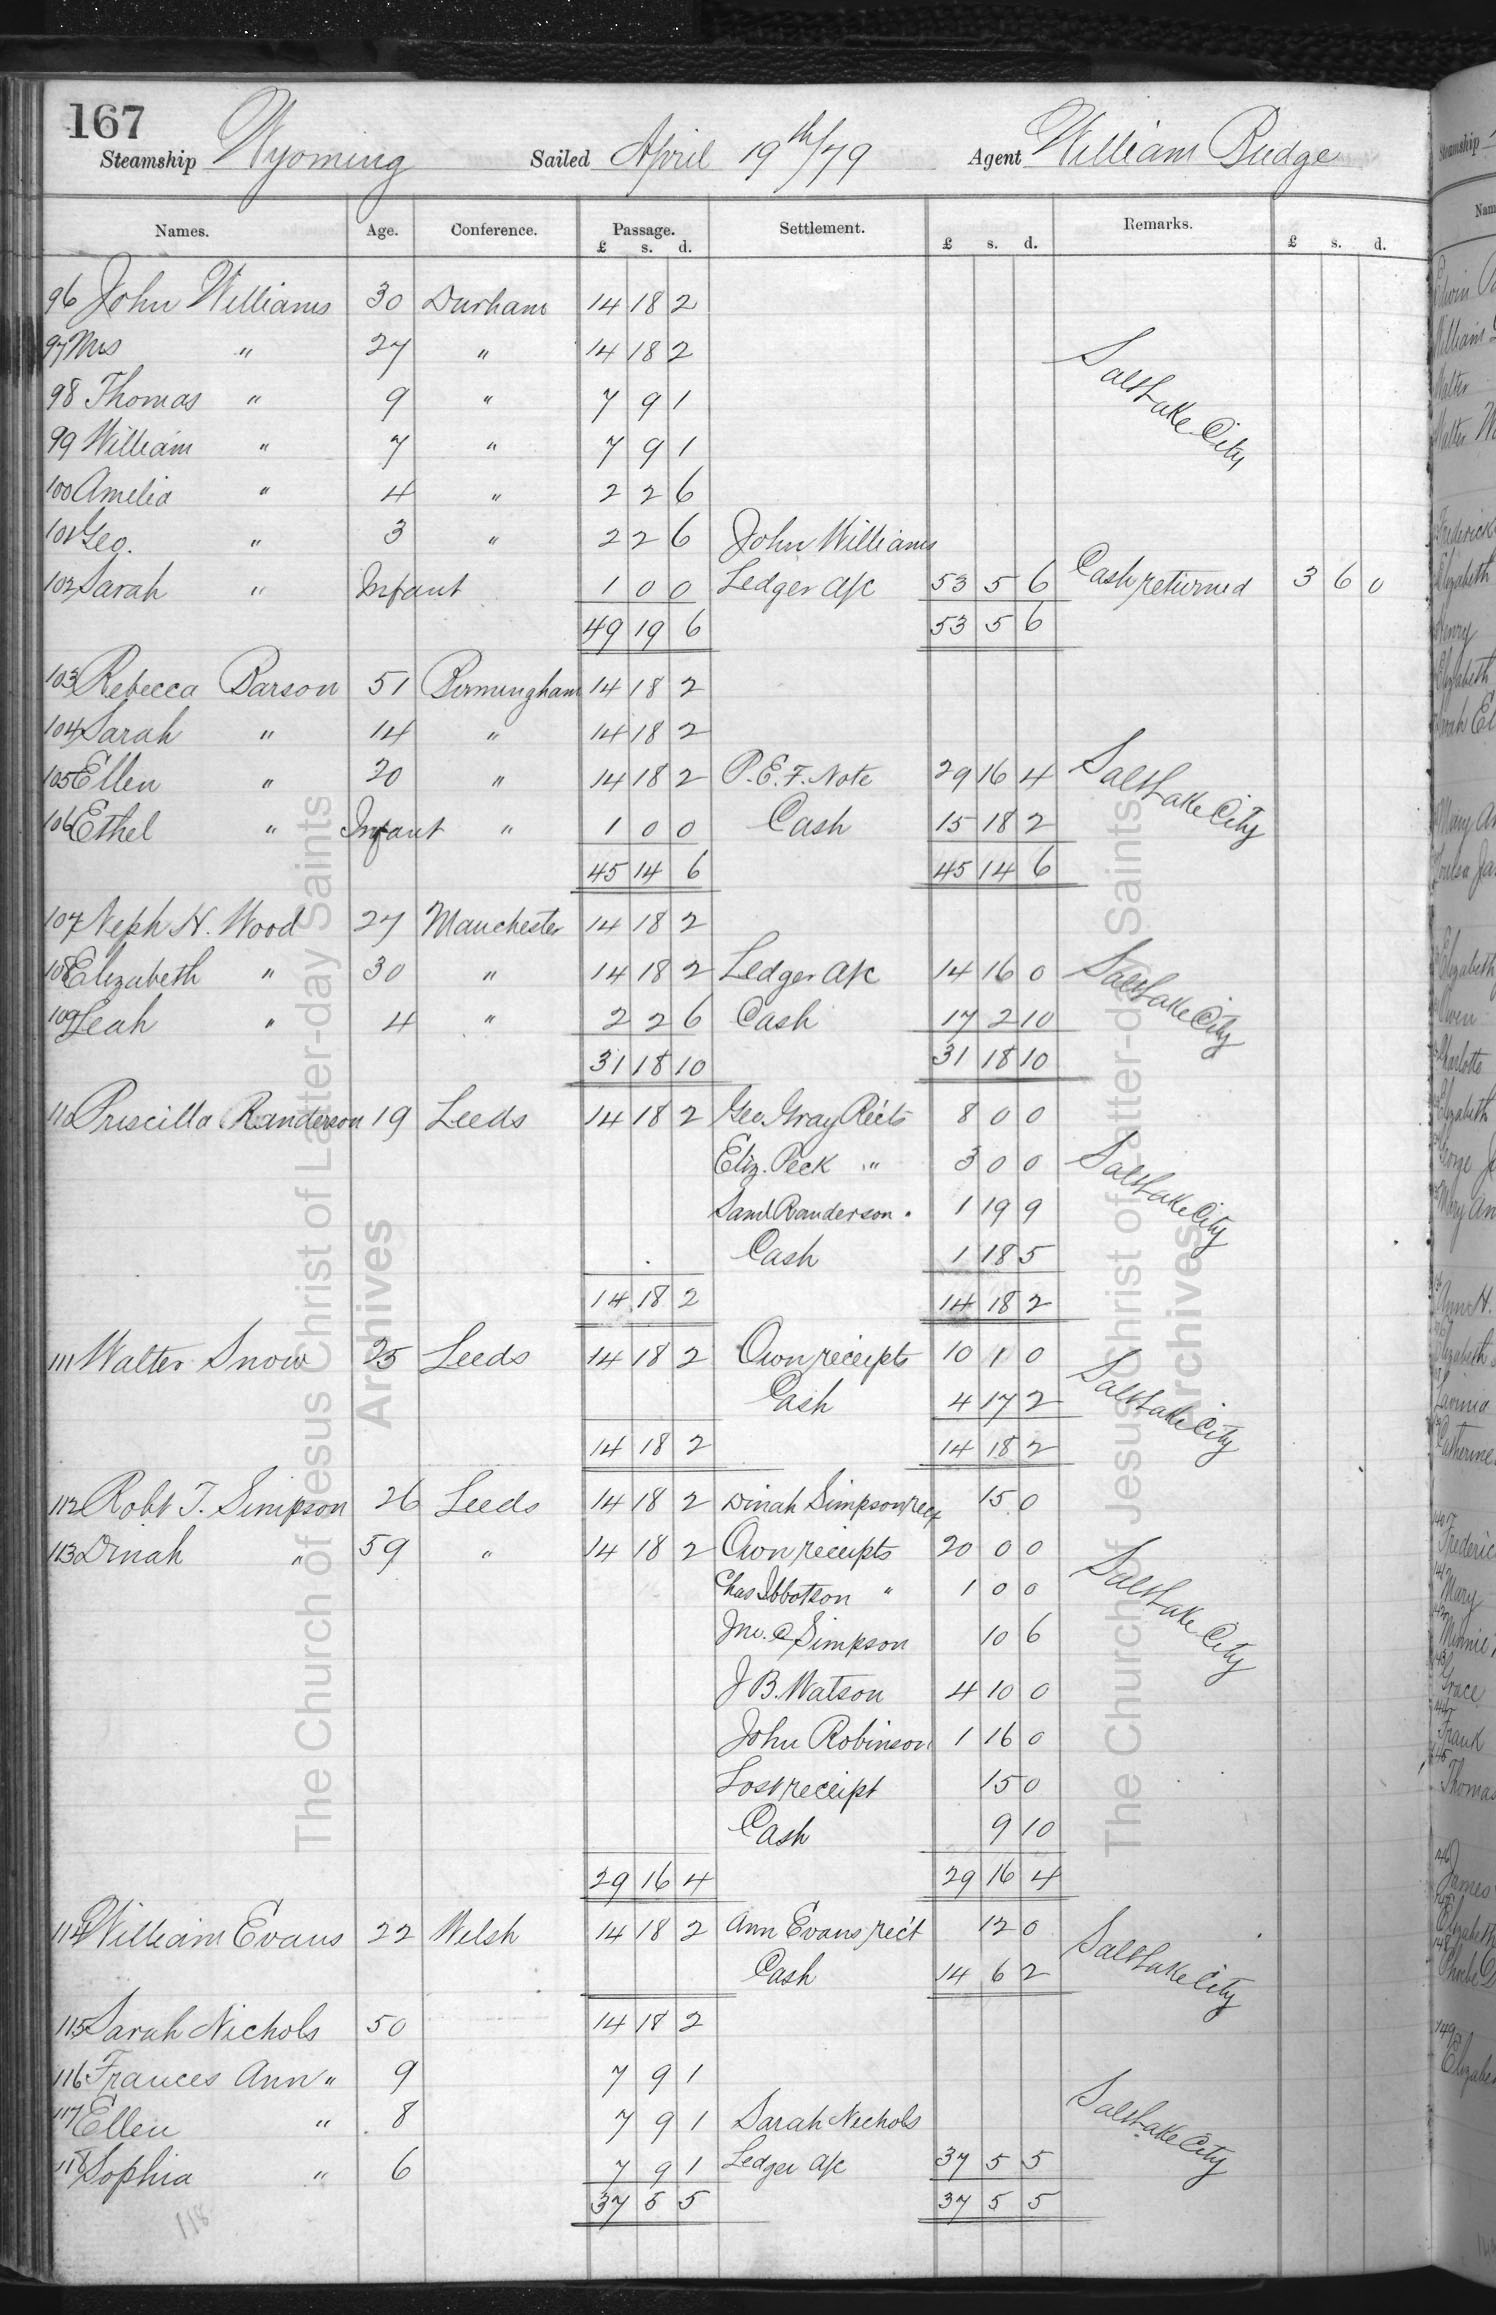 167
Steamship Wyoming Sailed April 19th/79 Agent William Budge
Names. Age. Conference. Passage. Settlement. Remarks.
£ s. d. £ s. d. £ s. d.
96 John Williams 30 Durham 14 18 2
97 Mrs " 27 " 14 18 2
98 Thomas " 9 " 7 9 1
99 William " 7 " 7 9 1
Salt Lake City
100 Amelia " 4 " 2 2 6
101 Geo. " 3 " 2 2 6 John Williams
102 Sarah " Infant 1 0 0 Ledger a/c 53 5 6 Cash returned 3 6 0
49 19 6 53 5 6
103 Rebecca Barson 51 Birmingham 14 18 2
104 Sarah " 14 " 14 18 2
105 Ellen " 20 " 14 18 2 P.E.F. Note 29 16 4 Salt Lake City
106 Ethel " Infant " 1 0 0 Cash 15 18 2
45 14 6 45 14 6
107 Neph H. Wood 27 Manchester 14 18 2
108 Elizabeth " 30 " 14 18 2 Ledger a/c 14 16 0 Salt Lake City
109 Leah " 4 " 2 2 6 Cash 17 2 10
31 18 10 31 18 10
110 Priscilla Randerson 19 Leeds 14 18 2 Geo. Gray Rects 8 0 0
Eliz. Peck " 3 0 0 Salt Lake City
Saml Randerson " 1 19 9
Cash 1 18 5
14 18 2 14 18 2
111 Walter Snow 25 Leeds 14 18 2 Own receipts 10 1 0
Cash 4 17 2 Salt Lake City
14 18 2 14 18 2
112 Robt T. Simpson 26 Leeds 14 18 2 Dinah Simpson rect 15 0
113 Dinah " 59 " 14 18 2 Own receipts 20 0 0
Chas Ibbotson " 1 0 0 Salt Lake City
Jno. C Simpson 10 6
J B. Watson 4 10 0
John Robinson 1 16 0
Lost receipt 15 0
Cash 9 10
29 16 4 29 16 4
114 William Evans 22 Welsh 14 18 2 Ann Evans rec't 12 0
Cash 14 6 2 Salt Lake City
115 Sarah Nichols 50 14 18 2
116 Frances Ann " 9 7 9 1
117 Ellen " 8 7 9 1 Sarah Nichols Salt Lake City
118 Sophia " 6 7 9 1 Ledger a/c 37 5 5
37 5 5 37 5 5
118
The Church of Jesus Christ of Latter-day Saints
Archives
The Church of Jesus Christ of Latter-day Saints
Archives